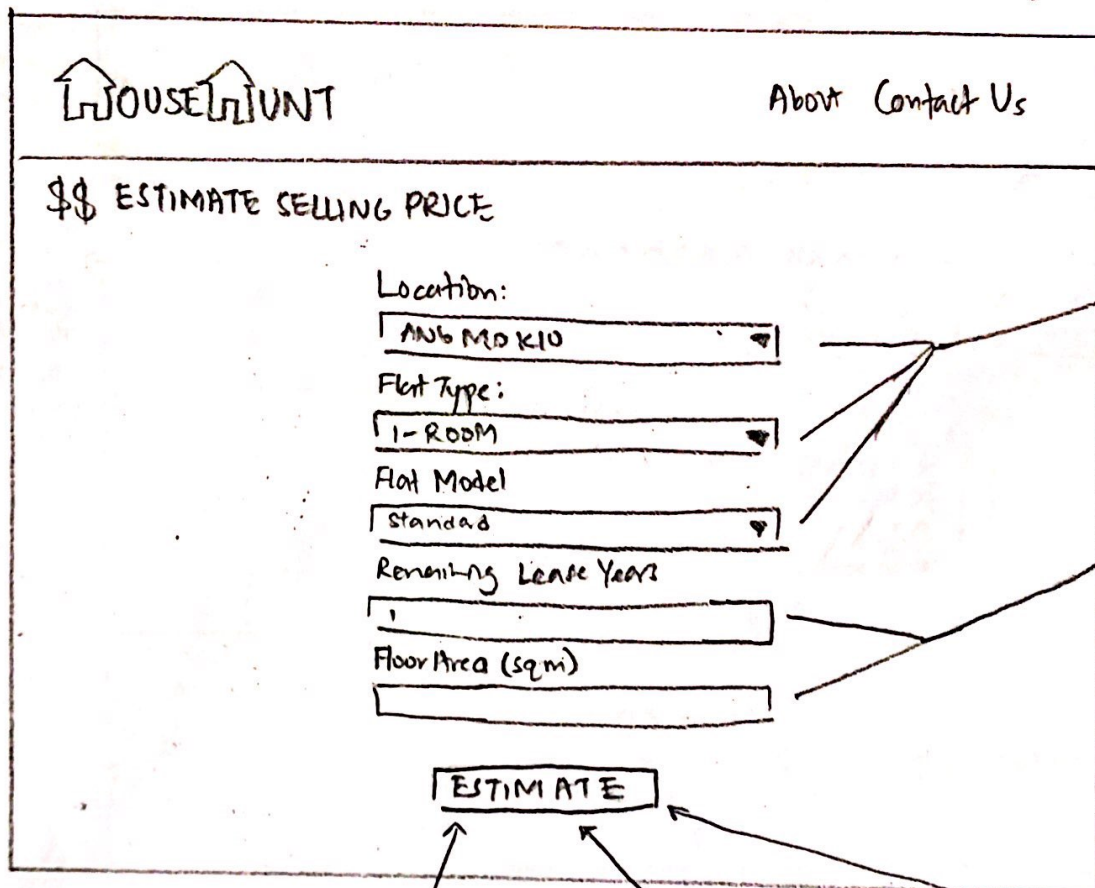 HOUSEHUNT
About Contact Us
$$ ESTIMATE SELLING PRICE
Location:
ANG MO KIO
Flat Type:
1-ROOM
Flat Model
Standad
Remaining Lease Years
1
Floor Area (sqm)
ESTIMATE